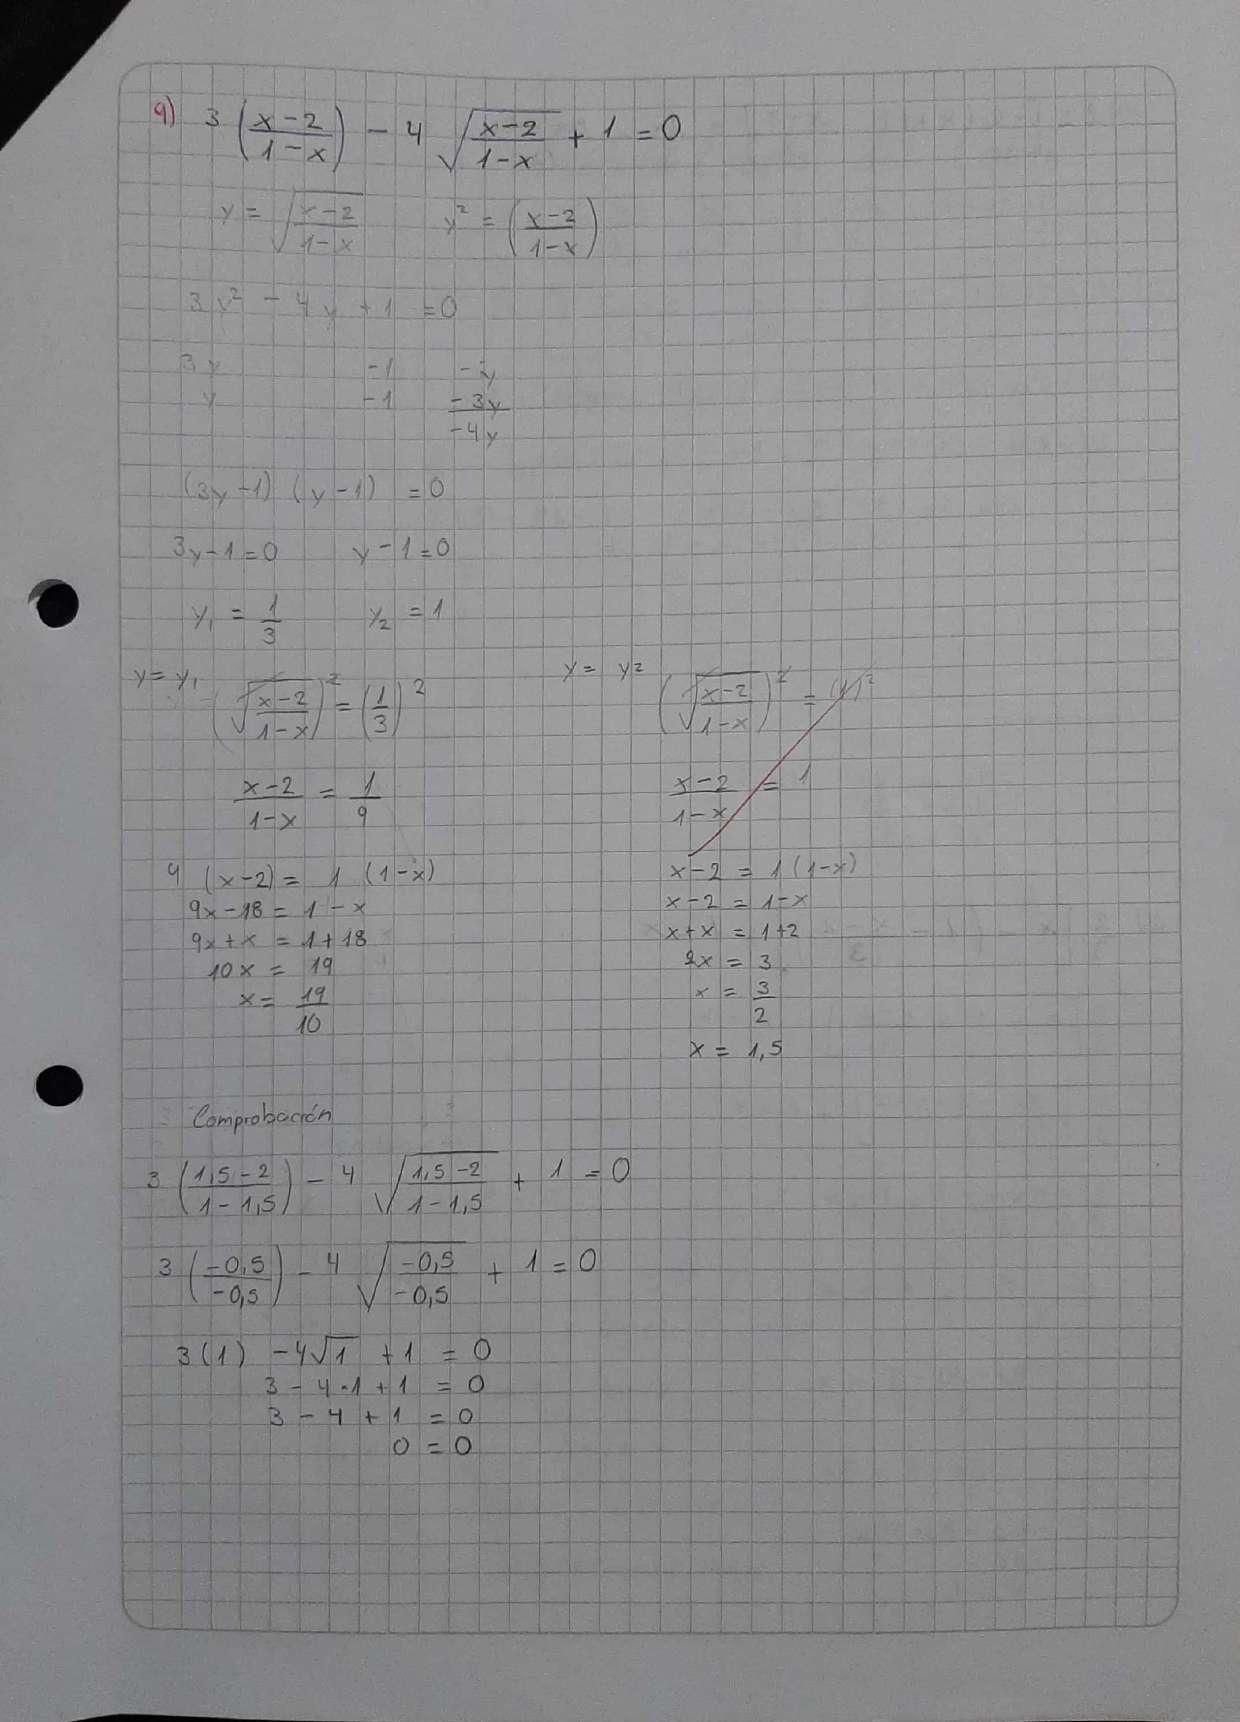 9) 3 (x-2/1-x) - 4 √(x-2/1-x) + 1 = 0
y = √(x-2/1-x) y² = (x-2/1-x)
3y² - 4y + 1 = 0
3y -1 -y
y -1 -3y
-4y
(3y-1) (y-1) = 0
3y-1=0 y-1=0
y₁ = 1/3 y₂ = 1
y = y₁ (√(x-2/1-x))² = (1/3)²
x-2/1-x = 1/9
9 (x-2) = 1 (1-x)
9x-18 = 1-x
9x+x = 1+18
10x = 19
x = 19/10
y = y₂ (√(x-2/1-x))² = (1)²
x-2/1-x = 1
x-2 = 1(1-x)
x-2 = 1-x
x+x = 1+2
2x = 3
x = 3/2
x = 1,5
Comprobación
3 (1,5-2/1-1,5) - 4 √(1,5-2/1-1,5) + 1 = 0
3 (-0,5/-0,5) - 4 √(-0,5/-0,5) + 1 = 0
3(1) - 4√1 + 1 = 0
3 - 4·1 + 1 = 0
3 - 4 + 1 = 0
0 = 0